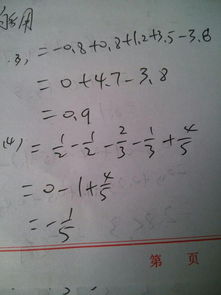 3) = -0.8+0.8+1.2+3.5-3.8
= 0+4.7-3.8
= 0.9
(4) = 1/2 - 1/2 - 2/3 - 1/3 + 4/5
= 0-1+4/5
= -1/5
第 页